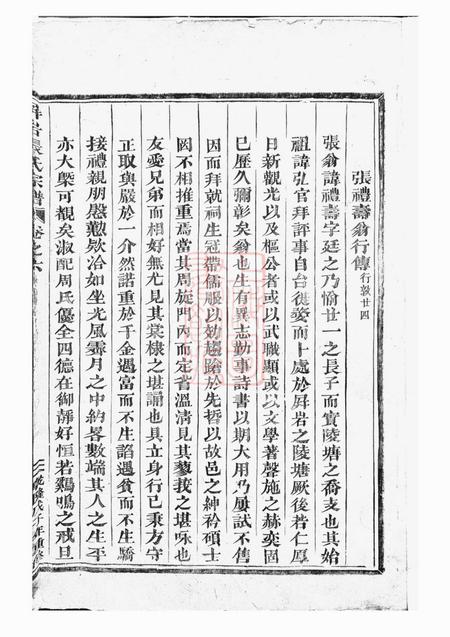 張禮壽翁行傳 行敦廿四
張翁諱禮壽字廷之乃愉廿一之長子而實陵塘之喬支也其始
祖諱弘官拜評事自台徙婺而卜處於屏岩之陵塘厥後若仁厚
日新觀光以及樞公者或以武職顯或以文學著聲施之赫奕固
已歷久彌彰矣翁也生有異志勤事詩書以期大用乃屢試不售
因而拜就祠生冠帶儒服以効趨蹌於先哲以故邑之紳衿碩士
罔不相推重焉當其周旋門內而定省溫凊見其蓼莪之堪咏也
友愛兄弟而相好無尤見其棠棣之堪誦也且立身行己秉方守
正取與嚴於一介然諾重於千金遇富而不生諂遇貧而不生驕
接禮親朋慇懃欵洽如坐光風霽月之中約畧數端其人之生平
亦大槩可覩矣淑配周氏優全四德在御靜好恒若鷄鳴之戒旦
張氏宗譜